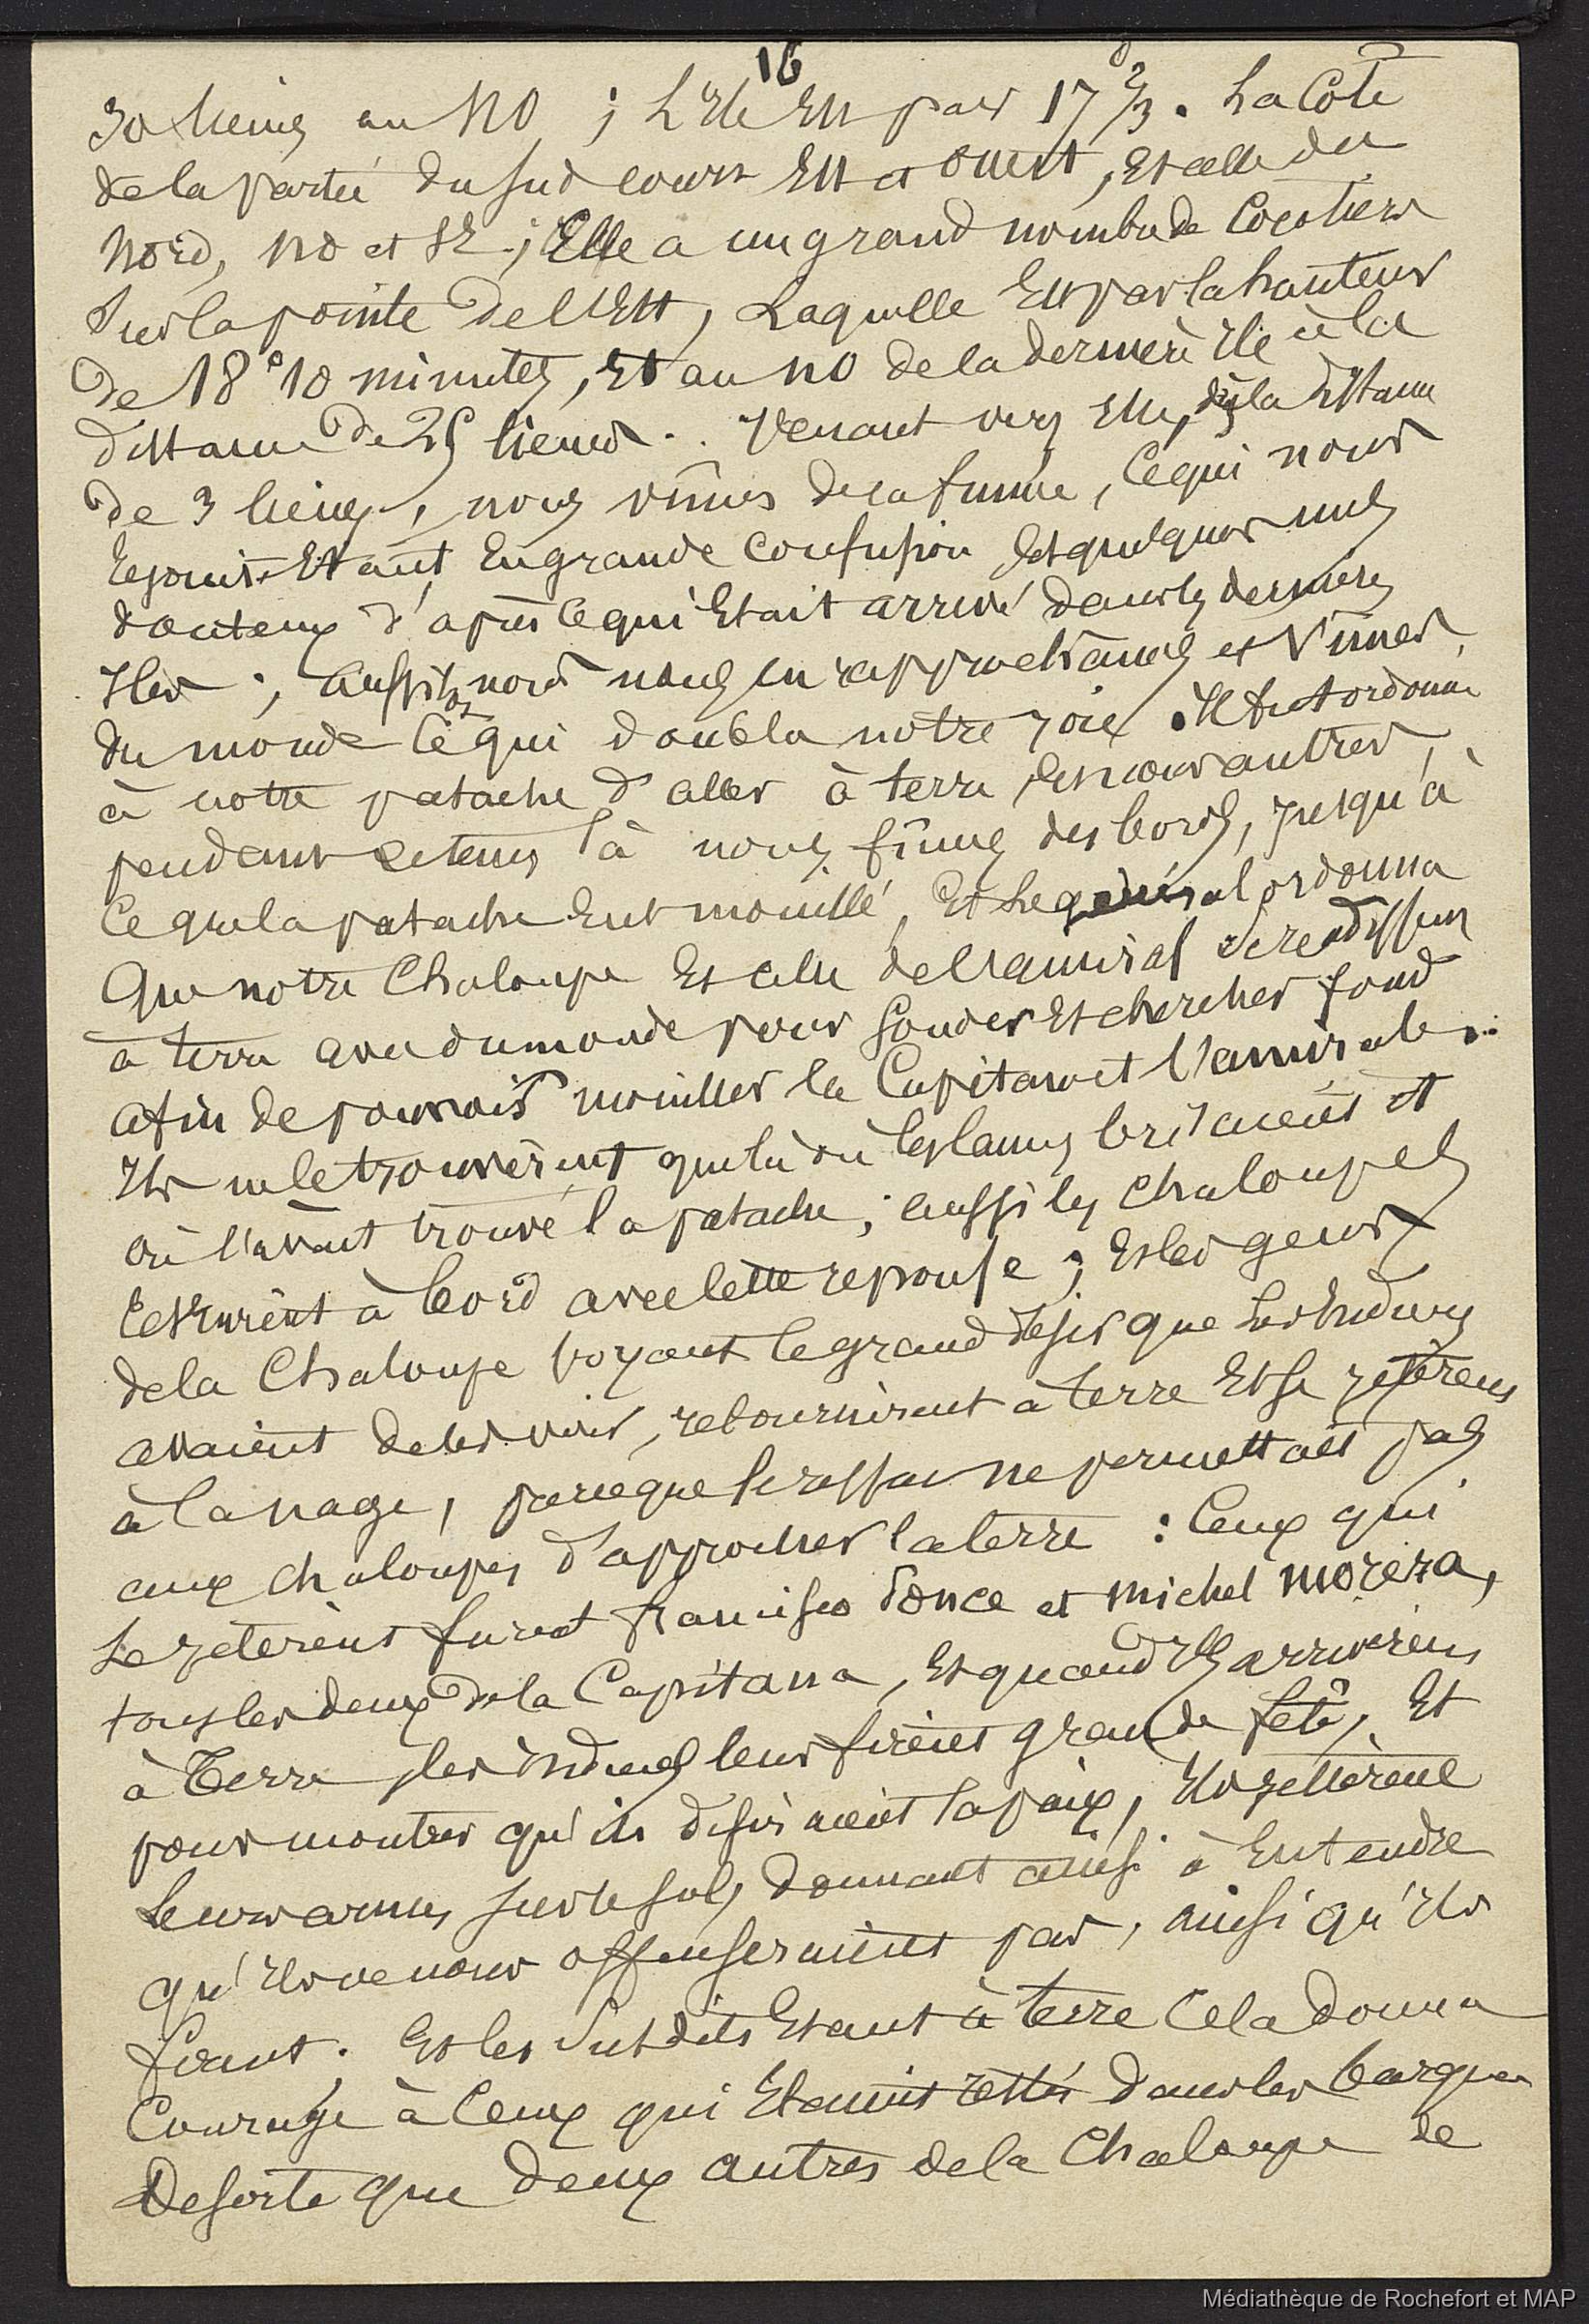 16
30 lieues au NO ; L'Ile Est par 17° 2/3. La Côte
de la partie du sud court Est et ouest, Et celle du
Nord, NO et SE ; Elle a un grand nombre de Cocotiers
Sur la pointe de l'Est, Laquelle Est par la hauteur
de 18° 10 minutes, Et au NO de la dernière Ile à la
distance de 25 lieues. . Venant vers Elle, dès la distance
de 3 lieues, nous vîmes de la fumée, Ce qui nous
Rejouit Etant En grande Confusion Et quelques uns
douteux d'après Ce qui Etait arrivé dans les dernières
Iles ; Aussitôt nous nous en rapprochâmes et Vîmes
du monde Ce qui doubla notre joie. Il fut ordonné
à notre patache d'aller à terre Et nous autres,
pendant Ce tems là nous fîmes des bords, jusqu'à
Ce que la patache Eut mouillé, Et Le général ordonna
Que notre Chaloupe Et celle de l'amiral Se rendissent
à terre avec du monde pour Sonder Et chercher fond
afin de pouvoir mouiller la Capitane et l'amirale..
Ils ne le trouvèrent que là où les lames brisaient et
où l'avait trouvé la patache ; aussi les chaloupes
revinrent à bord avec cette reponse ; Et les gens
de la Chaloupe Voyant le grand désir que Les Indiens
avaient de les voir, retournèrent à terre Et se jetèrent
à la nage, parce que le ressac ne permettait pas
aux chaloupes d'approcher la terre : Ceux qui
Se jetèrent furent Francisco Ponce et Michel Morera,
tous les deux de la Capitana, Et quand Ils arrivèrent
à Terre les indiens leur firent grande fête, Et
pour montrer qu'ils désiraient la paix, Ils jettèrent
leurs armes sur le sol, donnant ainsi à Entendre
qu'Ils ne nous offenseraient pas, ainsi qu'Ils
firent. Et les Susdits Etant à terre Cela donna
Courage à Ceux qui Etaient restés dans les barques
De sorte que deux autres de la Chaloupe de
Médiathèque de Rochefort et MAP